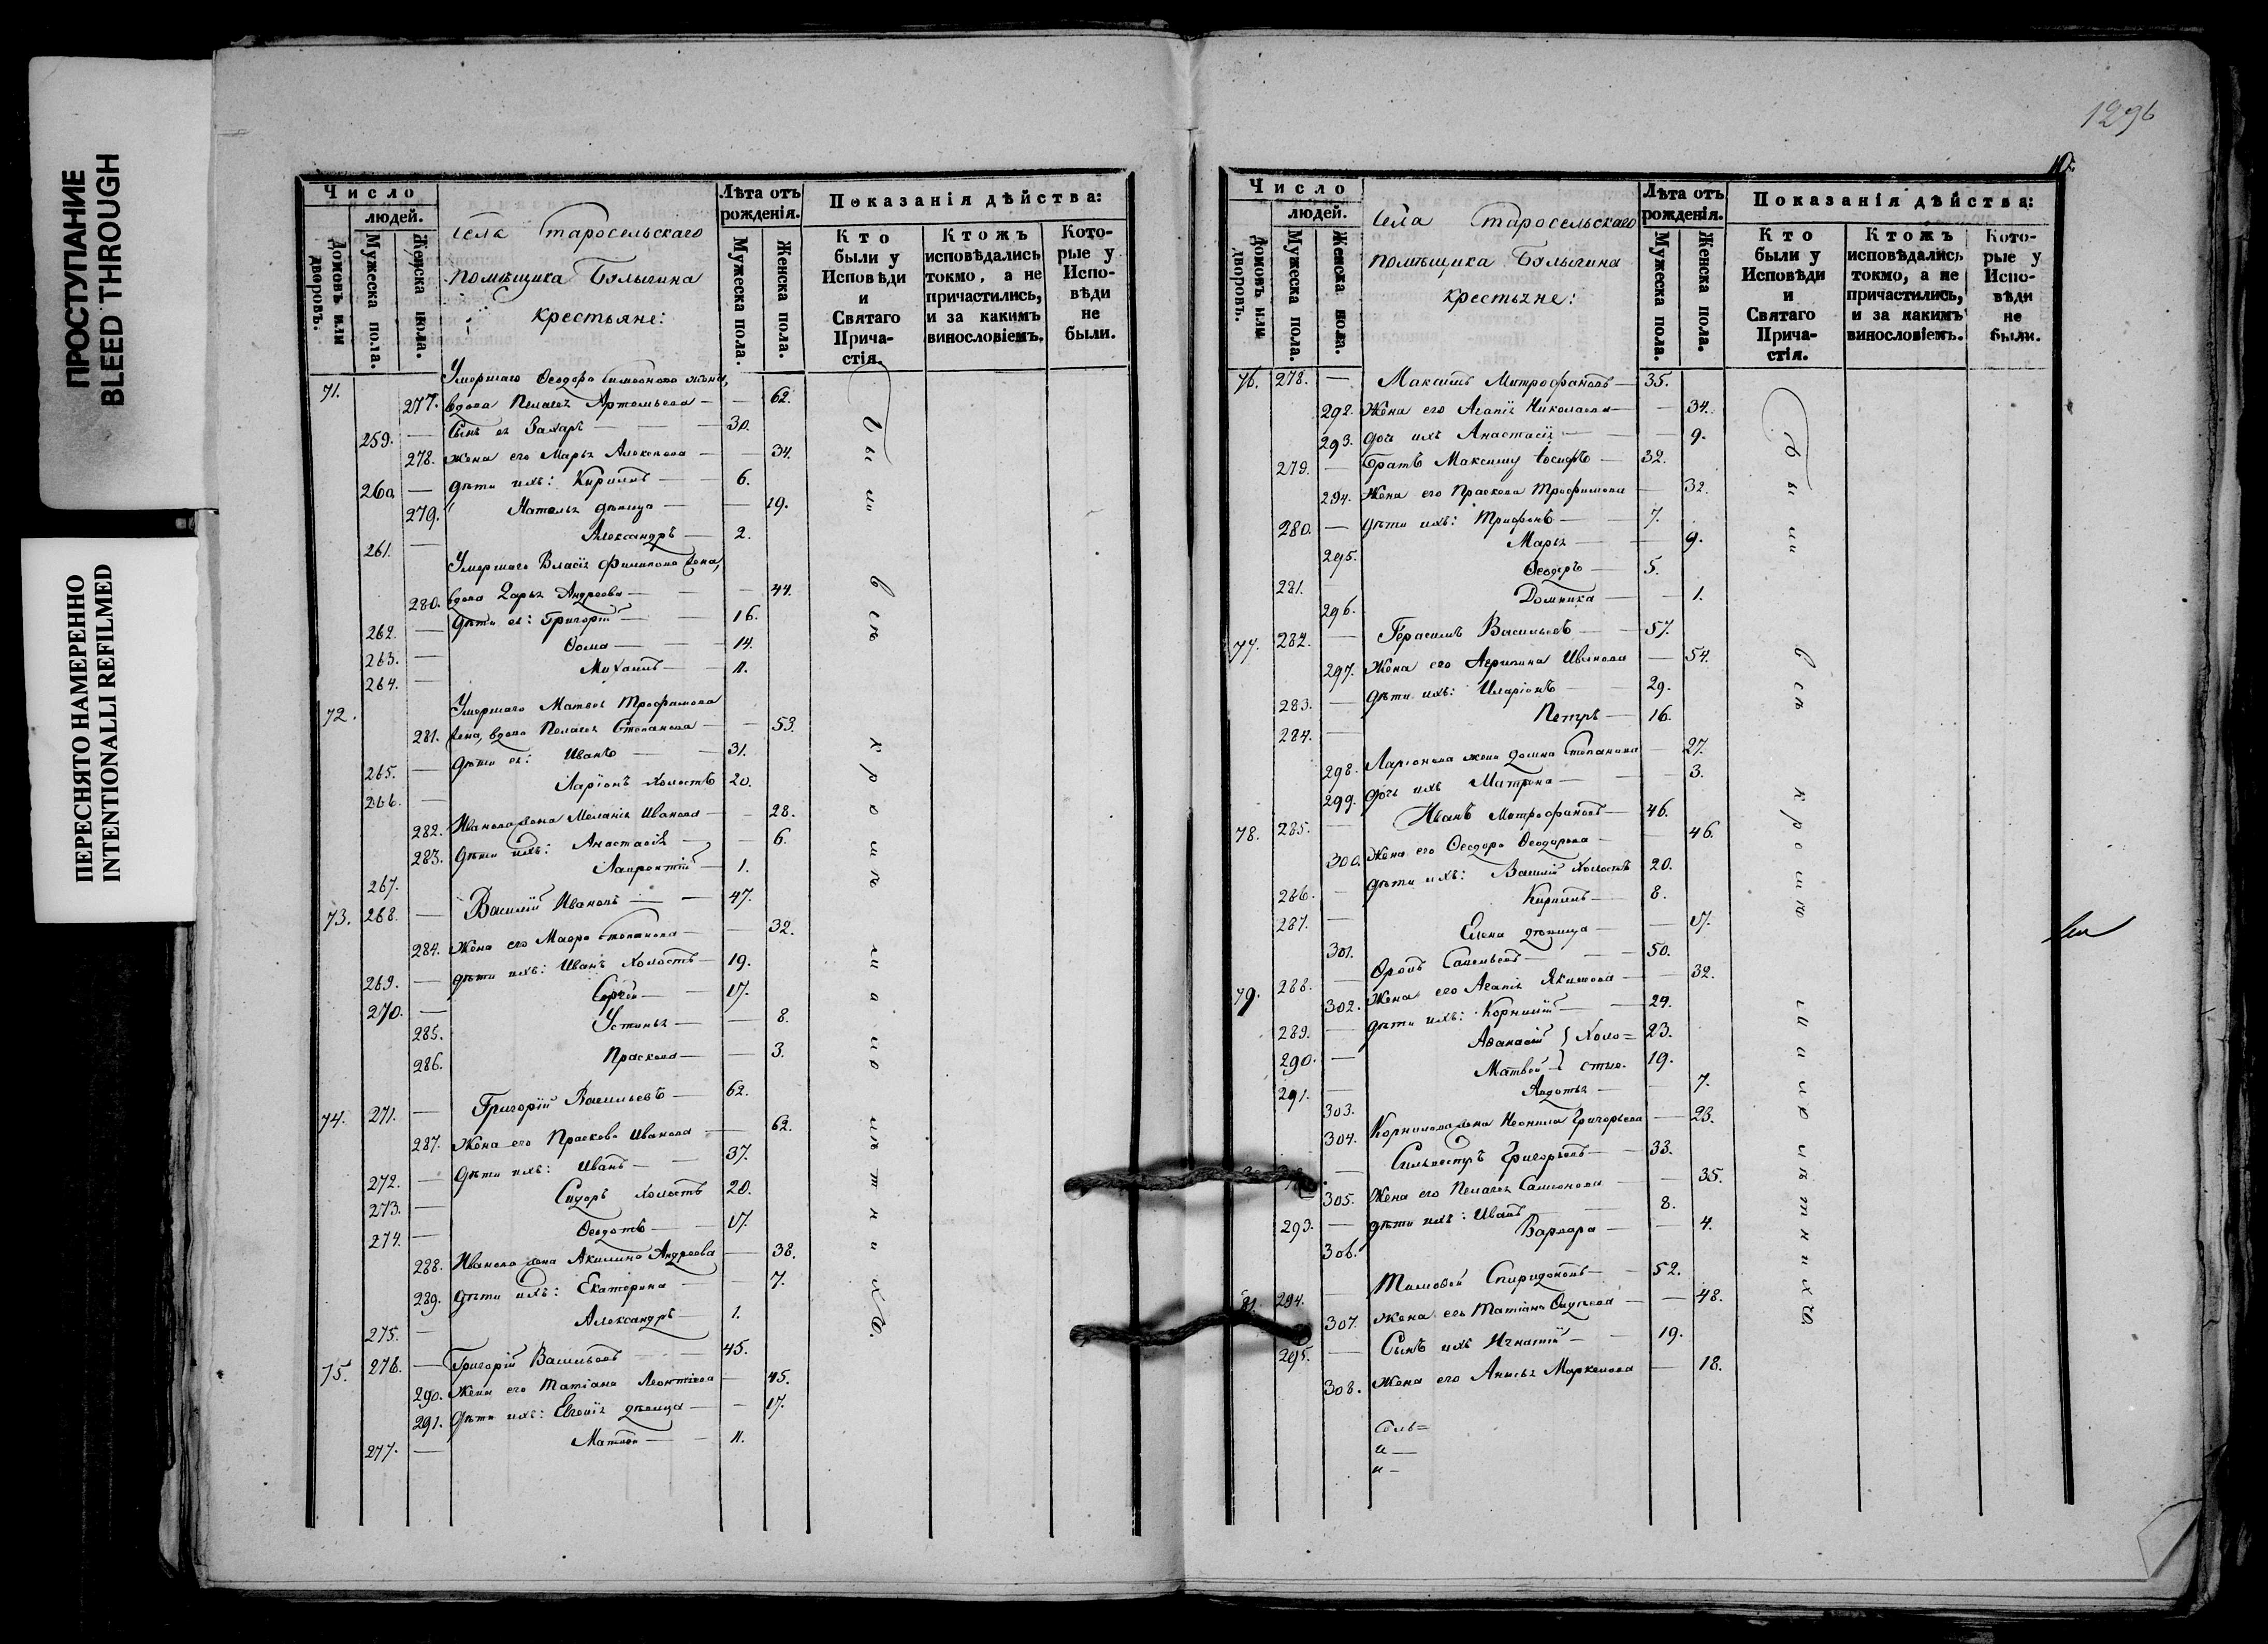 ПРОСТУПАНИЕ
BLEED THROUGH
ПЕРЕСНЯТО НАМЕРЕННО
INTENTIONALLI REFILMED
Число
людей.
Домовъ или дворовъ.
Мужеска пола.
Женска пола.
Села Таросельскаго
помѣщика Булыгина
крестьяне:
Лѣта отъ рожденія.
Мужеска пола.
Женска пола.
Показанія дѣйства:
Кто были у Исповѣди и Святаго Прича-стія.
Ктожъ исповѣдались токмо, а не причастились, и за какимъ винословіемъ.
Кото-рые у Испо-вѣди не были.
71. Умершаго Ѳеодора Симеонова жена,
277. вдова Пелагея Артемьева — — 62.
259. — Сынъ ея Захаръ — — — 30.
278. жена его Марья Алексеева — — 34.
260. — дѣти ихъ: Кириллъ — 6.
279. Наталья дѣвица — — 19.
261. — Александръ — 2.
Умершаго Власія Филипова жена,
280. вдова Дарья Андреева — — 44.
262. — дѣти ея: Григорій — 16.
263. — Ѳома — — 14.
264. — Михаилъ — 11.
72. Умершаго Матвея Трофимова
281. жена, вдова Пелагея Степанова — — 53.
265. — дѣти ея: Иванъ — 31.
266. — Ларіонъ холостъ 20.
282. Иванова жена Меланія Иванова — — 28.
283. дѣти ихъ: Анастасія — — 6.
267. Лаврентій — 1.
73. 268. — Василій Ивановъ — — 47.
284. жена его Мавра Степанова — — 32.
269. — дѣти ихъ: Иванъ холостъ — 19.
270. — Сергей — 17.
285. Устинья — — 8.
286. Прасковья — — 3.
74. 271. — Григорій Васильевъ — 62.
287. Жена его Прасковья Иванова — 62.
272. — дѣти ихъ: Иванъ — 37.
273. — Сидоръ холостъ 20.
274. — Ѳеодотъ — 17.
288. Иванова жена Акилина Андреева — 38.
289. дѣти ихъ: Екатерина — — 7.
275. — Александръ — 1.
75. 276. — Григорій Васильевъ — 45.
290. Жена его Татіана Леонтіева — 45.
291. дѣти ихъ: Евгенія дѣвица — — 17.
277. — Матвей — — 11.
Были всѣ кромѣ малолѣтнихъ.
1296
Число
людей.
Домовъ или дворовъ.
Мужеска пола.
Женска пола.
Села Таросельскаго
помѣщика Булыгина
крестьяне:
Лѣта отъ рожденія.
Мужеска пола.
Женска пола.
Показанія дѣйства:
Кто были у Исповѣди и Святаго Прича-стія.
Ктожъ исповѣдались токмо, а не причастились, и за какимъ винословіемъ.
Кото-рые у Испо-вѣди не были.
76. 278. — Максимъ Митрофановъ — 35.
292. Жена его Агапія Николаева — — 34.
293. дочь ихъ Анастасія — — 9.
279. — Братъ Максиму Іосифъ — 32.
294. Жена его Прасковья Трофимова — 32.
280. — дѣти ихъ: Трифонъ — 7.
295. Марья — — 9.
281. Ѳеодоръ — 5.
296. Домника — — 1.
77. 282. — Герасимъ Васильевъ — 57.
297. Жена его Агрипина Иванова — 54.
283. — дѣти ихъ: Иларіонъ — 29.
284. — Петръ — 16.
298. Ларіонова жена Домна Степанова — 27.
299. дочь ихъ Матрона — — 3.
78. 285. — Иванъ Митрофановъ — 46.
300. Жена его Ѳеодора Ѳеодорова — 46.
286. — дѣти ихъ: Василій холостъ 20.
287. — Кириллъ — 8.
301. Елена дѣвица — — 17.
79. 288. — Фролъ Савельевъ — 50.
302. Жена его Агапія Якимова — — 32.
289. — дѣти ихъ: Корнилій — 24.
290. — Аѳанасій } холо= 23.
291. — Матвей } стые. 19.
303. Авдотья — — 7.
304. Корнилова жена Неонила Григорьева — 23.
— Сильвестръ Григорьевъ — 33.
305. Жена его Пелагея Самсонова — 35.
293. — дѣти ихъ: Иванъ — 8.
306. Варвара — — 4.
81. 294. — Тимоѳей Спиридоновъ — 52.
307. Жена его Татіана — 48.
295. — Сынъ ихъ Игнатій — 19.
308. Жена его Анисья Маркелова — 18.
Были всѣ кромѣ малолѣтнихъ